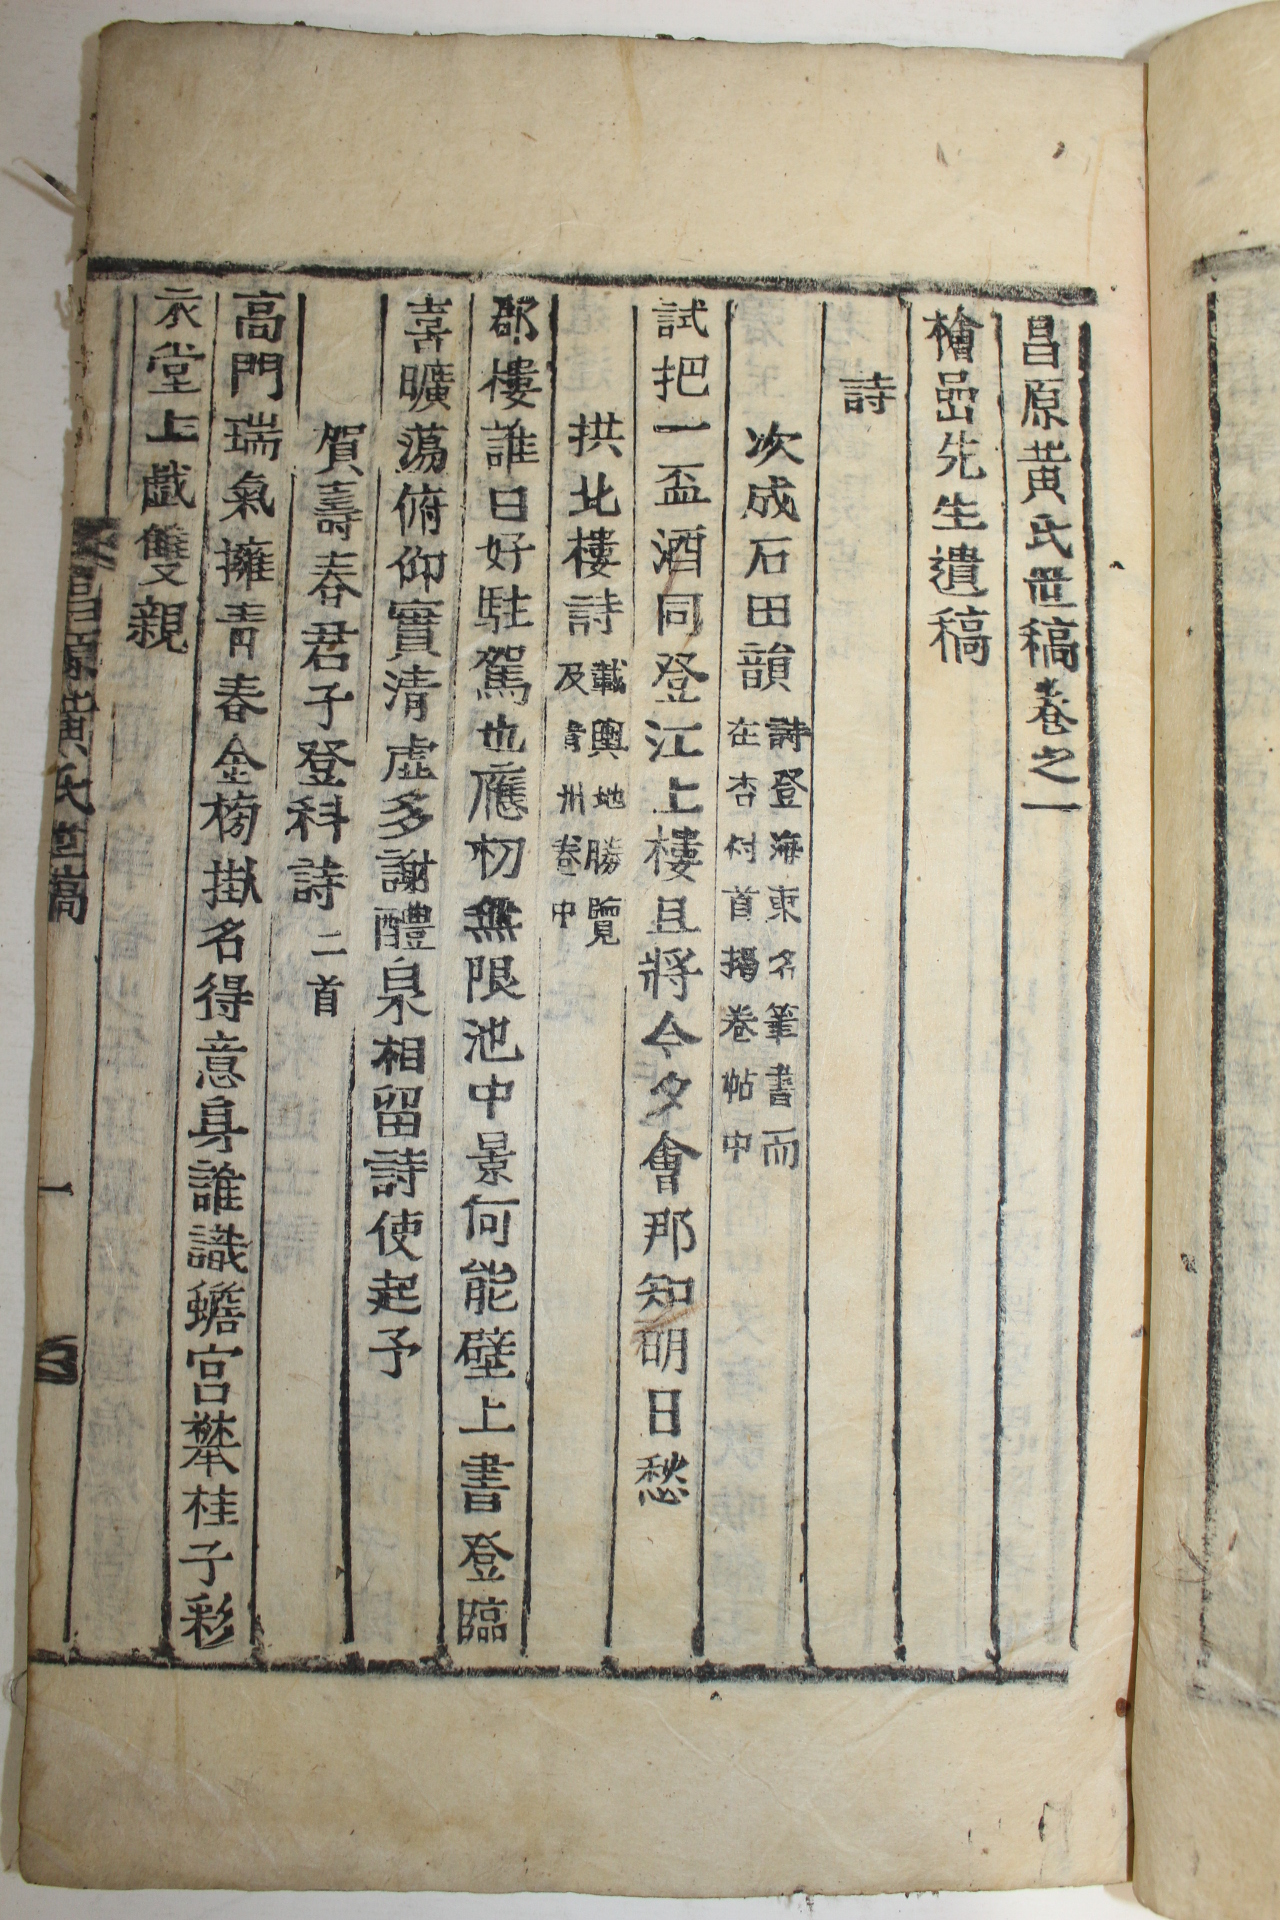 昌原黃氏世稿卷之一
檜嵒先生遺稿
詩
次成石田韻 詩登海東名筆書而
在杏村首揭卷帖中
試把一盃酒同登江上樓且將今夕會那知明日愁
拱北樓詩 載輿地勝覽
及靑州卷中
郡樓誰曰好駐駕也應初無限池中景何能壁上書登臨
喜曠蕩俯仰實清虛多謝醴泉相留詩使起予
賀壽春君子登科詩 二首
高門瑞氣擁靑春金榜掛名得意身誰識蟾宮攀桂子彩
衣堂上戱雙親
昌原黃氏世稿
一